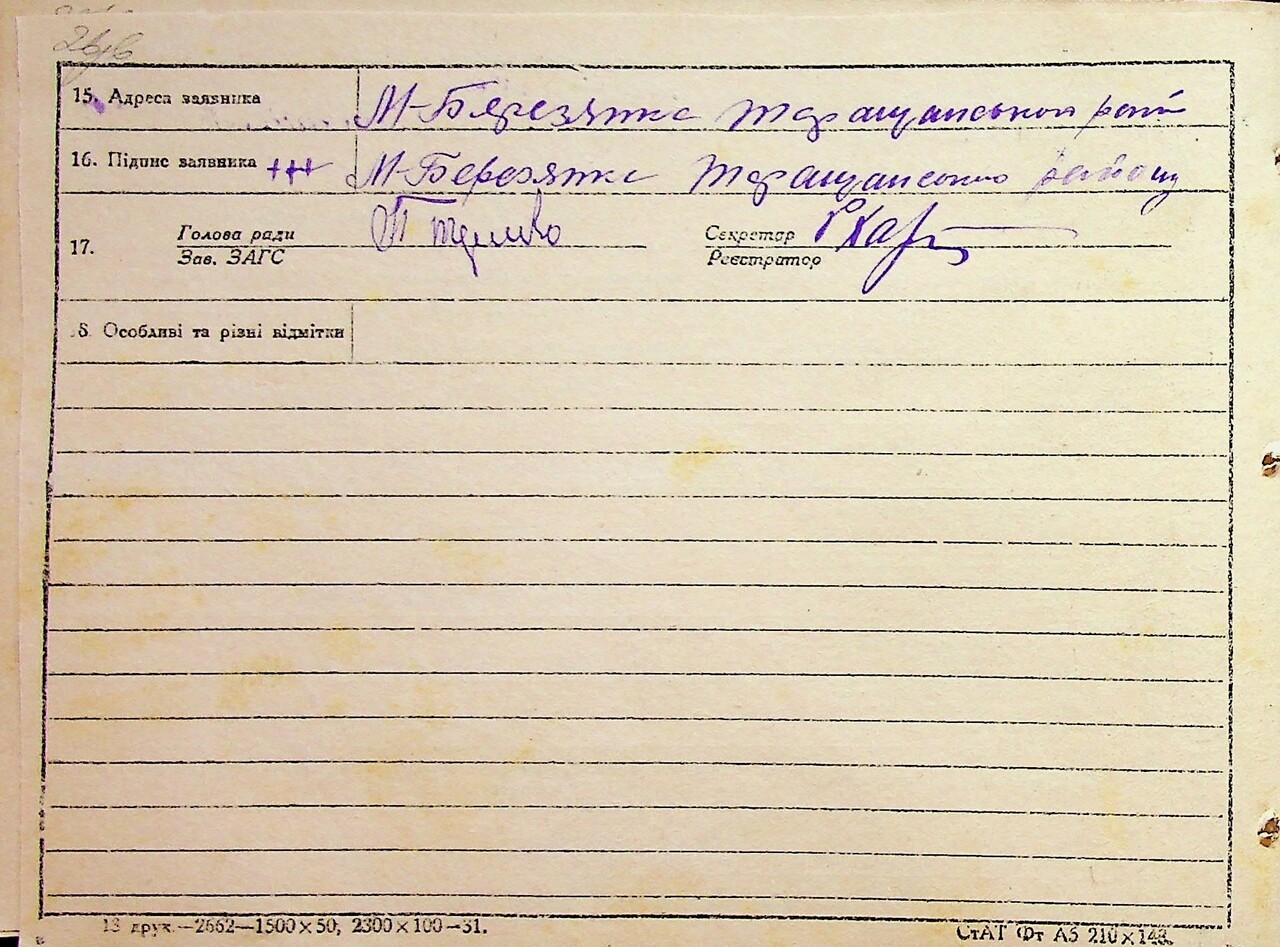 15. Адреса заявника М-Бярезянка Таращанського рай
16. Підпис заявника +++ М-Березянка Таращанського району
17. Голова ради Секретар
Зав. ЗАГС Реєстратор
8. Особливі та різні відмітки
13 друк.—2662—1500×50; 2300×100—31.
СтАТ Фт А5 210×148.